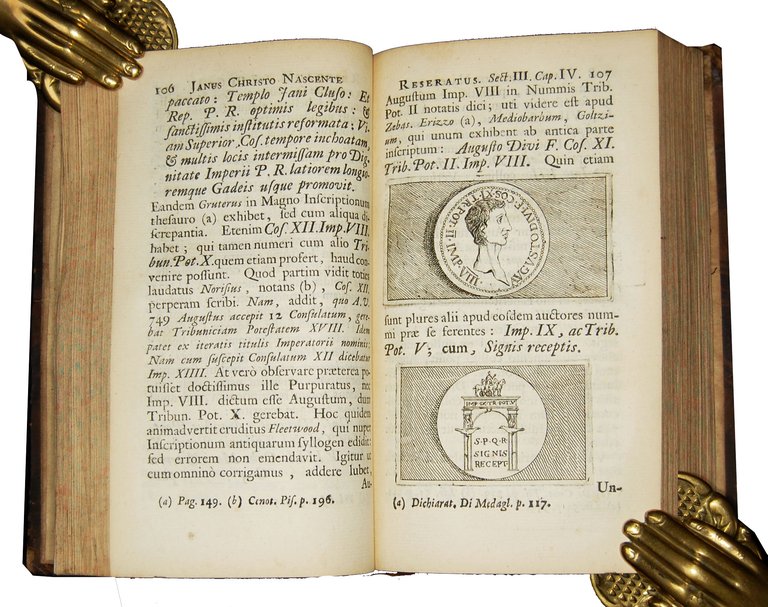 106 JANUS CHRISTO NASCENTE
paccato: Templo Jani Cluso: Et
Rep. P. R. optimis legibus: &
sanctissimis institutis reformata; Vi-
am Superior. Cos. tempore inchoatam,
& multis locis intermissam pro Dig-
nitate Imperii P. R. latiorem longio-
remque Gadeis usque promovit.
Eandem Gruterus in Magno Inscriptionum
thesauro (a) exhibet, sed cum aliqua di-
screpantia. Etenim Cos. XII. Imp. VIII.
habet; qui tamen numeri cum alio Tri-
bun. Pot. X. quem etiam profert, haud con-
venire possunt. Quod partim vidit toties
laudatus Norisius, notans (b), Cos. XII.
perperam scribi. Nam, addit, quo A. V.
749 Augustus accepit 12 Consulatum, gere-
bat Tribuniciam Potestatem XVIII. Idem
patet ex iteratis titulis Imperatorii nominis;
Nam cum suscepit Consulatum XII dicebatur
Imp. XIIII. At verò observare præterea po-
tuisset doctissimus ille Purpuratus, nec
Imp. VIII. dictum esse Augustum, dum
Tribun. Pot. X. gerebat. Hoc quidem
animadvertit eruditus Fleetwood, qui nuper
Inscriptionum antiquarum syllogen edidit:
sed errorem non emendavit. Igitur ut
cum omninò corrigamus, addere lubet,
Au-
(a) Pag. 149. (b) Cenot. Pis. p. 196.
RESERATUS. Sect. III. Cap. IV. 107
Augustum Imp. VIII in Nummis Trib.
Pot. II notatis dici; uti videre est apud
Zebas. Erizzo (a), Mediobarbum, Goltzi-
um, qui unum exhibent ab antica parte
inscriptum: Augusto Divi F. Cos. XI.
Trib. Pot. II. Imp. VIII. Quin etiam
sunt plures alii apud eosdem auctores num-
mi præ se ferentes: Imp. IX, ac Trib.
Pot. V; cum, Signis receptis.
IMP·IX·TR·POT·V
S·P·Q·R
SIGNIS
RECEPT
Un-
(a) Dichiarat. Di Medagl. p. 117.